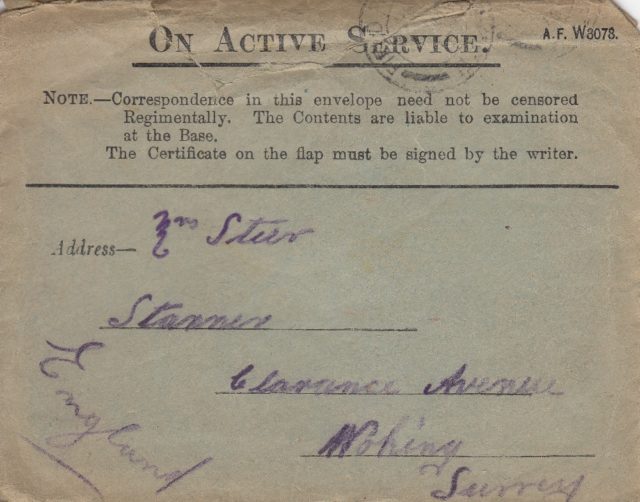 ON ACTIVE SERVICE.
A.F. W3078.
NOTE.—Correspondence in this envelope need not be censored
Regimentally. The Contents are liable to examination
at the Base.
The Certificate on the flap must be signed by the writer.
Address— Mrs Steer
Stanner
Clarance Avenue
Woking
Surrey
England